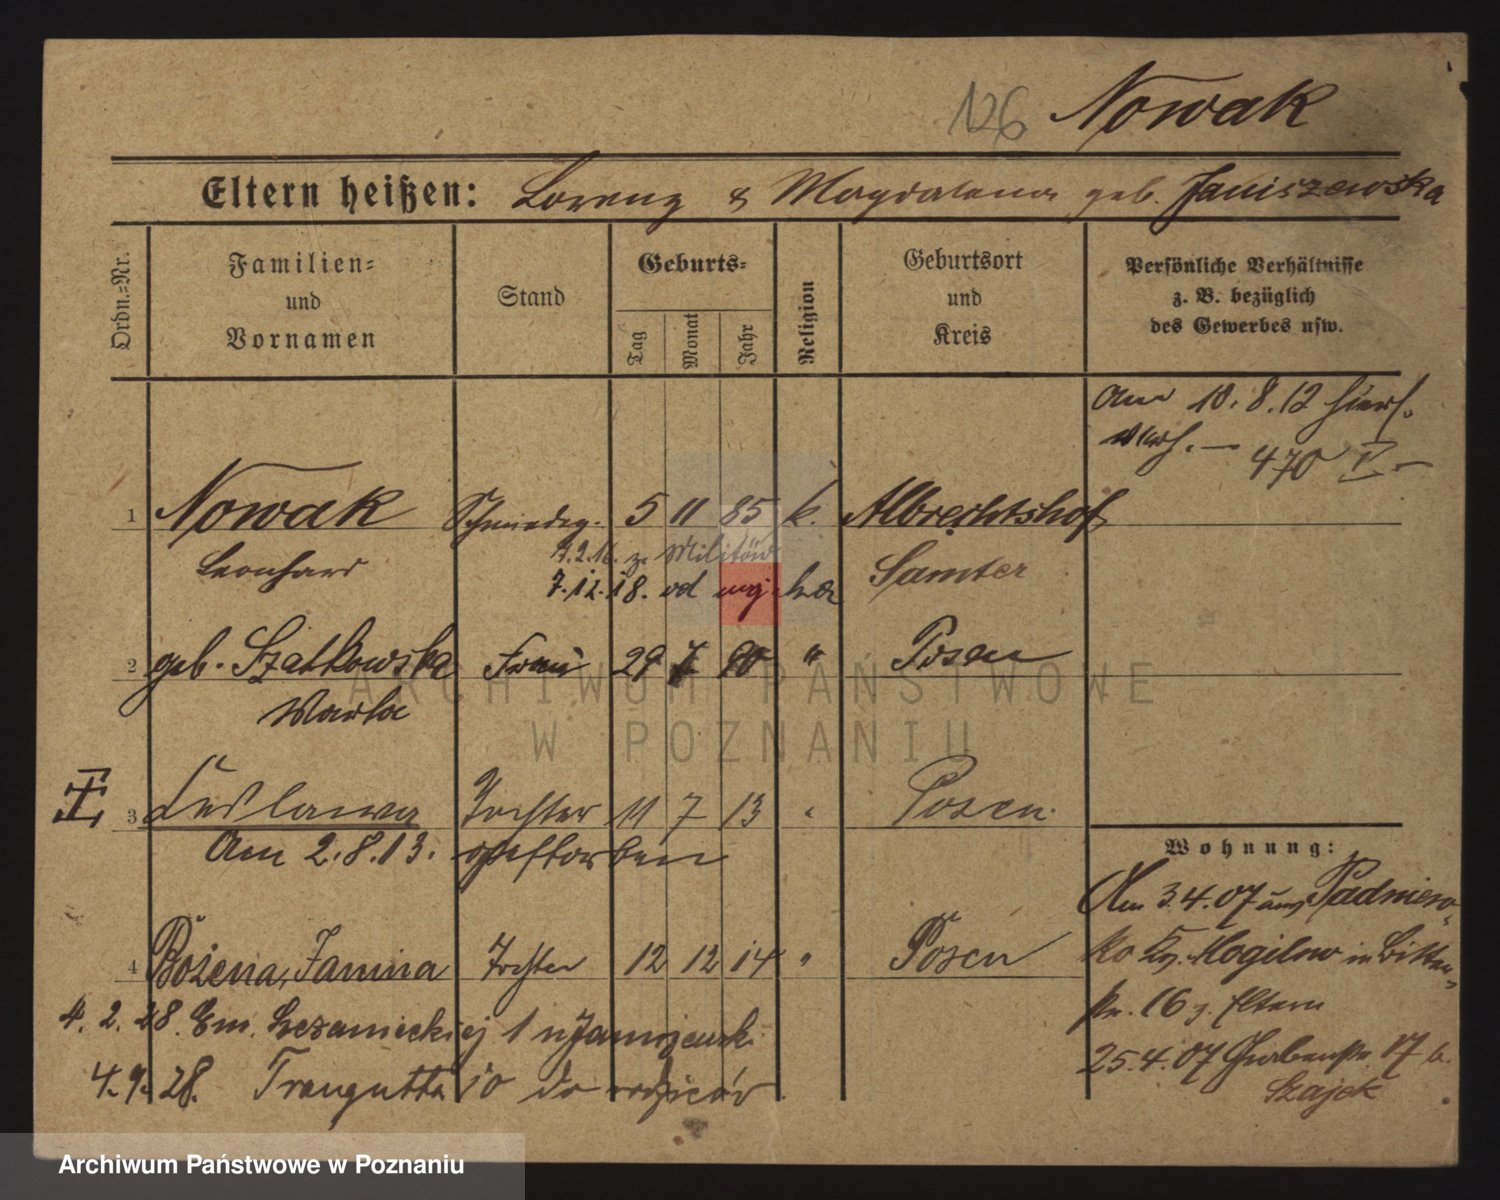 126 Nowak
Eltern heißen: Lorenz & Magdalena geb. Janiszewska
Ordn.=Nr.
Familien=
und
Vornamen
Stand
Geburts=
Tag
Monat
Jahr
Religion
Geburtsort
und
Kreis
Persönliche Verhältnisse
z. B. bezüglich
des Gewerbes usw.
Am 10. 8. 12 hiers.
verh. — 470 V —
1 Nowak Schmiedeg. 5 11 85 k. Albrechtshof
Leonhard Samter
z. Militär
7.12.18. od
2 geb. Szatkowska Frau 29 7 90 " Posen
3 Tochter 11 7 13 " Posen
Am 2. 8. 13. gestorben
4 Bożena, Janina Tochter 12 12 14 " Posen
4. 2. 28.
4. 9. 28. Traugutta 10 do rodziców
Wohnung:
Am 3.4.07 aus
Mogilno in
16 z. Eltern
25.4.07 17 b.
Szajek
ARCHIWUM PAŃSTWOWE
W POZNANIU
Archiwum Państwowe w Poznaniu